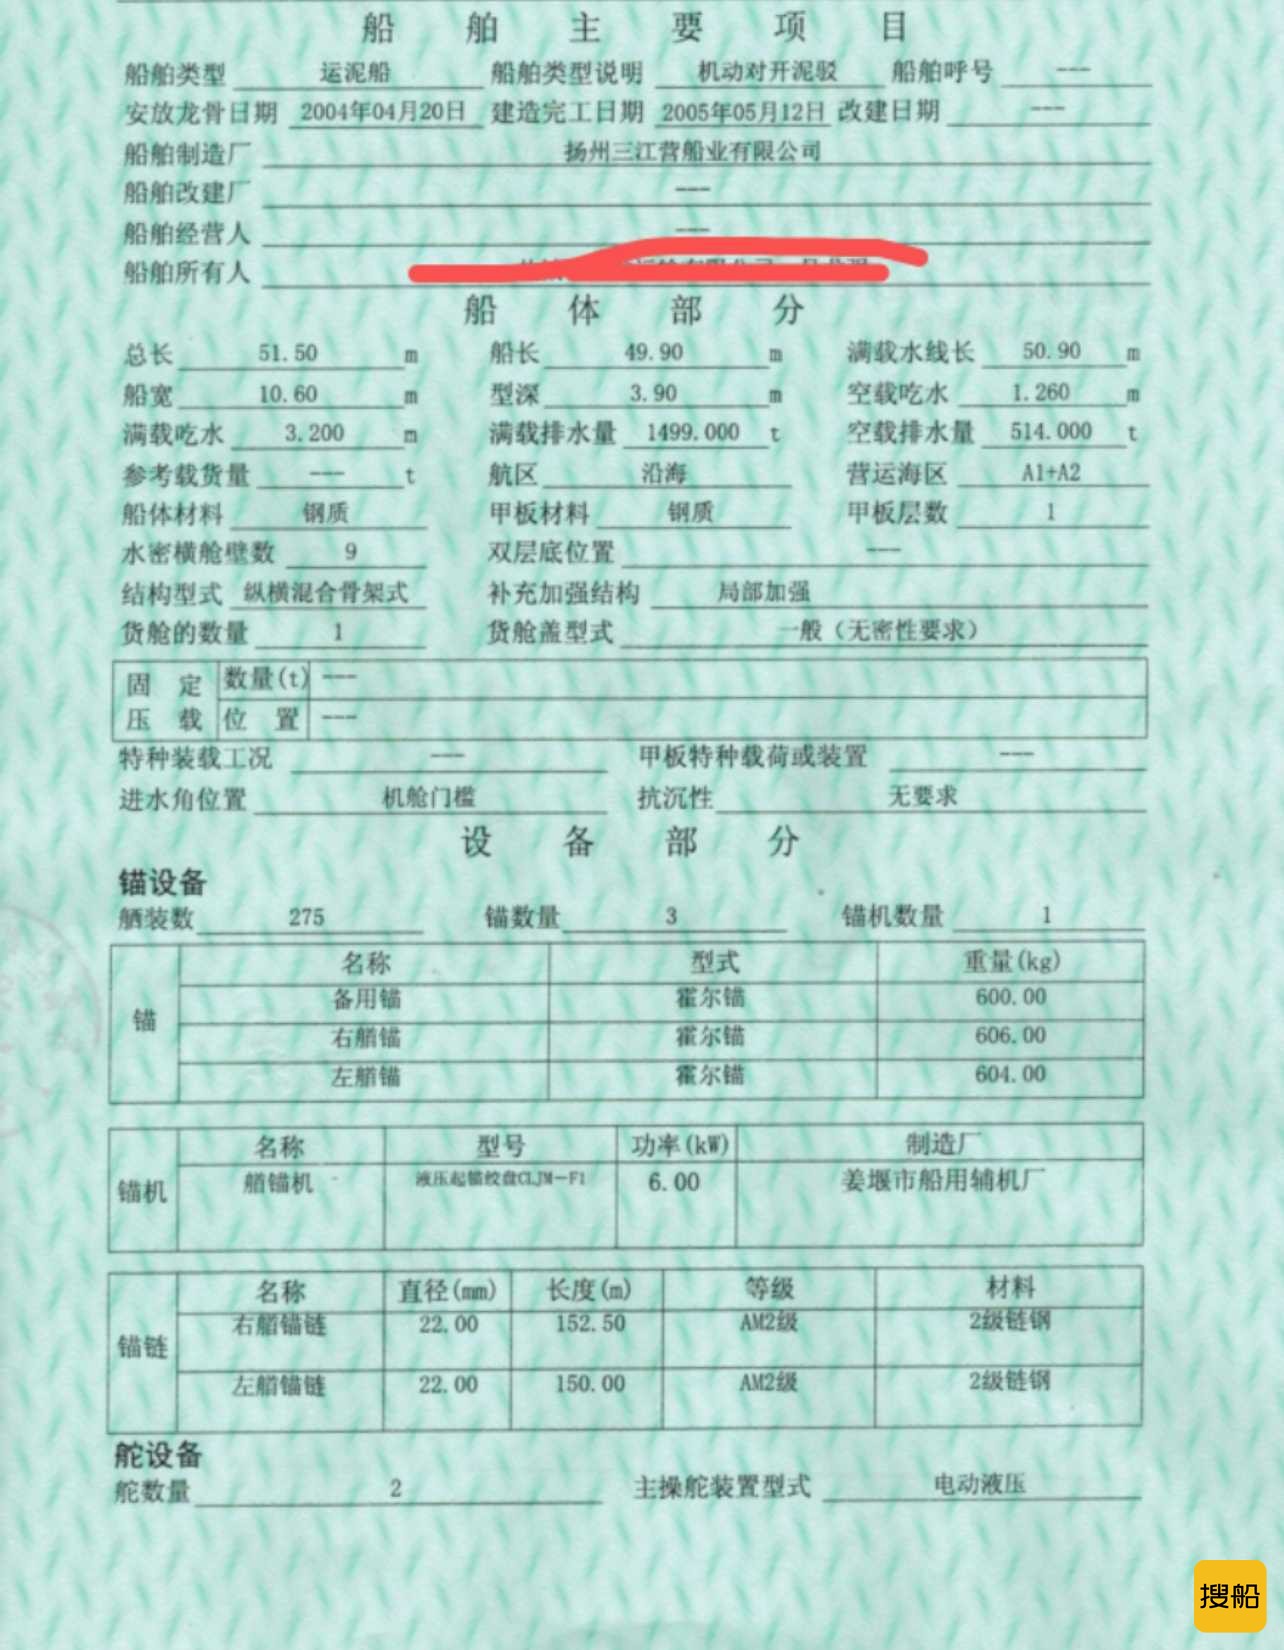 船舶主要项目
船舶类型 运泥船 船舶类型说明 机动对开泥驳 船舶呼号 ---
安放龙骨日期 2004年04月20日 建造完工日期 2005年05月12日 改建日期 ---
船舶制造厂 扬州三江营船业有限公司
船舶改建厂 ---
船舶经营人 ---
船舶所有人
船体部分
总长 51.50 m 船长 49.90 m 满载水线长 50.90 m
船宽 10.60 m 型深 3.90 m 空载吃水 1.260 m
满载吃水 3.200 m 满载排水量 1499.000 t 空载排水量 514.000 t
参考载货量 --- t 航区 沿海 营运海区 A1+A2
船体材料 钢质 甲板材料 钢质 甲板层数 1
水密横舱壁数 9 双层底位置 ---
结构型式 纵横混合骨架式 补充加强结构 局部加强
货舱的数量 1 货舱盖型式 一般（无密性要求）
固定压载 数量(t) ---
位置 ---
特种装载工况 --- 甲板特种载荷或装置 ---
进水角位置 机舱门槛 抗沉性 无要求
设备部分
锚设备
舾装数 275 锚数量 3 锚机数量 1
锚 名称 型式 重量(kg)
备用锚 霍尔锚 600.00
右艏锚 霍尔锚 606.00
左艏锚 霍尔锚 604.00
锚机 名称 型号 功率(kW) 制造厂
艏锚机 液压起锚绞盘CLJM-F1 6.00 姜堰市船用辅机厂
锚链 名称 直径(mm) 长度(m) 等级 材料
右艏锚链 22.00 152.50 AM2级 2级链钢
左艏锚链 22.00 150.00 AM2级 2级链钢
舵设备
舵数量 2 主操舵装置型式 电动液压
搜船